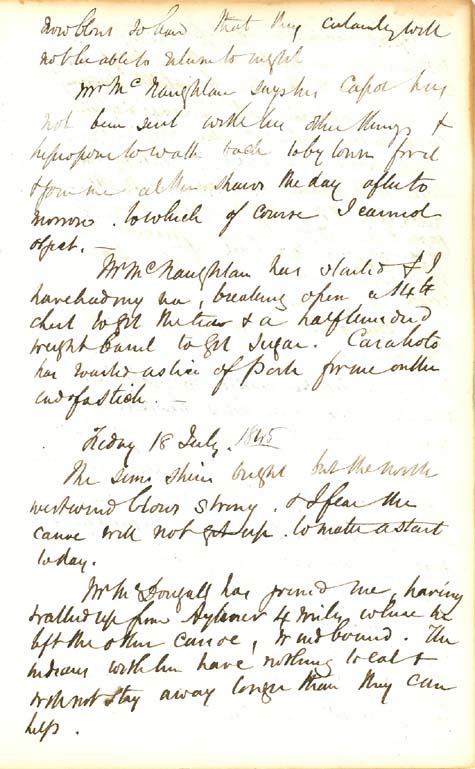 now blows so hard that they certainly will
not be able to return to night
Mr McNaughlan says his Capot has
not been sent with his other things &
he proposes to walk back to by town for it
& join me at the Shaws the day after to
morrow. to which of course I cannot
object. —
Mr McNaughlan has started & I
have had my tea, breaking open a 14 lb
chest to get the tea & a half hundred
weight barrel to get Sugar.
has roasted a slice of Pork for me on the
end of a stick. —
Friday 18 July. 1845
The sun shines bright but the north
west wind blows strong. & I fear the
canoe will not get up. to make a start
to day.
Mr McDougall has joined me, having
walked up from Aylmer 4 miles, where he
left the other canoe, wind bound. The
Indians with him have nothing to eat &
will not stay away longer than they can
help.